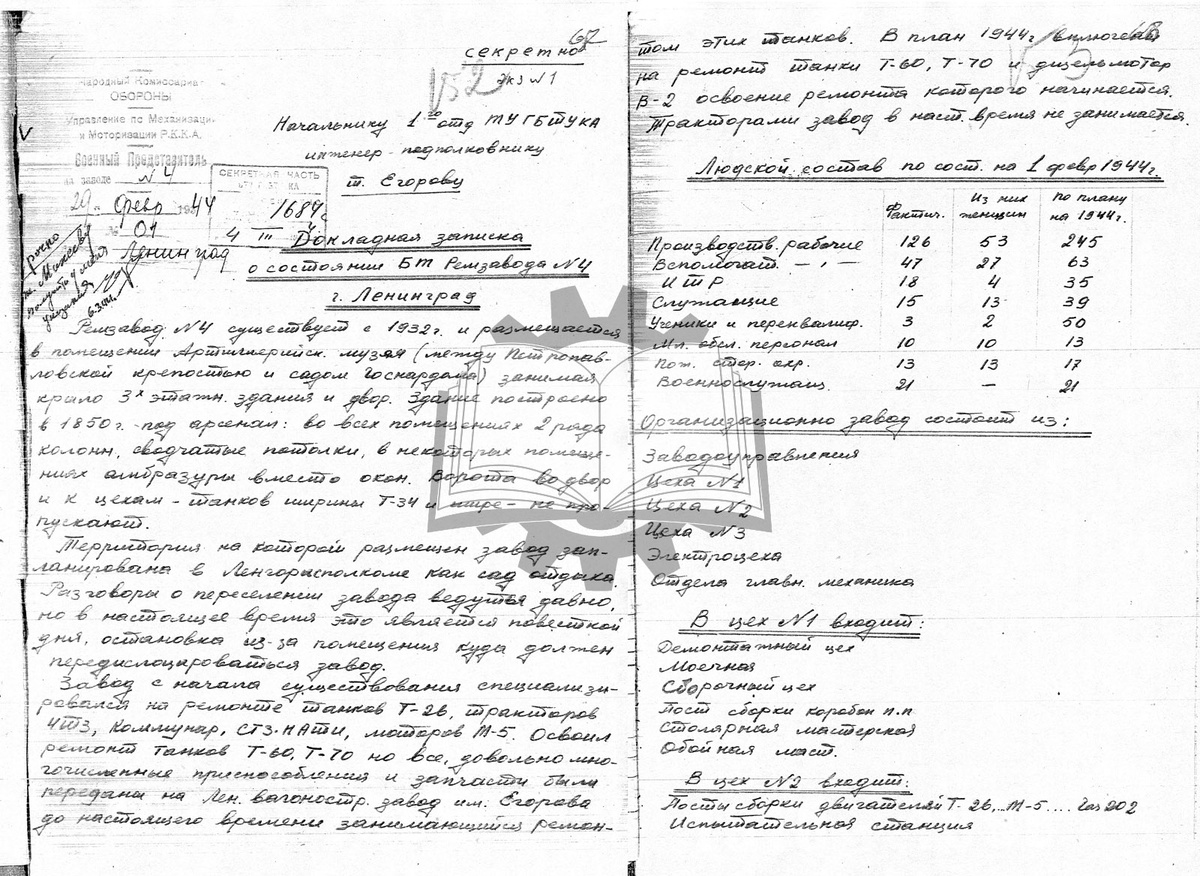 67
секретно
152
Экз №1
Народный Комиссариат
ОБОРОНЫ
Управление по Механизации
и Моторизации Р.К.К.А.
Военный Представитель
на заводе №4
29 февр 1944
№ 01
Ленинград
СЕКРЕТНАЯ ЧАСТЬ
1684с
4 III 4
Срочно
6.3.44.
Начальнику 1го отд ТУ ГБТУ КА
инженер-подполковнику
т. Егорову
Докладная записка
о состоянии БТ Ремзавода №4
г. Ленинград
Ремзавод №4 существует с 1932г. и размещается
в помещении Артиллерийск. музея (между Петропав-
ловской крепостью и садом Госнардома) занимая
крыло 3х этажн. здания и двор. Здание построено
в 1850г. под арсенал: во всех помещениях 2 ряда
колонн, сводчатые потолки, в некоторых помеще-
ниях амбразуры вместо окон. Ворота во двор
и к цехам - танков ширины Т-34 и шире - не про-
пускают.
Территория на которой размещен завод зап-
ланирована в Ленгорисполкоме как сад отдыха.
Разговоры о переселении завода ведуться давно,
но в настоящее время это является повесткой
дня, остановка из-за помещения куда должен
передислоцироваться завод.
Завод с начала существования специализи-
ровался на ремонте танков Т-26, тракторов
ЧТЗ, Коммунар, СТЗ-НАТИ, моторов М-5. Освоил
ремонт танков Т-60, Т-70 но все, довольно мно-
гочисленные приспособления и запчасти были
переданы на Лен. вагоностр. завод им. Егорова
до настоящего времени занимающийся ремон-
том этих танков. В план 1944г включены
на ремонт танки Т-60, Т-70 и дизельмотор
В-2 освоение ремонта которого начинается.
Тракторами завод в наст. время не занимается.
Людской состав по сост. на 1 февр 1944г.
Фактич. Из них женщин по плану на 1944г.
Производств. рабочие 126 53 245
Вспомогат. — " — 47 27 63
ИТР 18 4 35
Служащие 15 13 39
Ученики и переквалиф. 3 2 50
Мл. обсл. персонал 10 10 13
Пож. стор. охр. 13 13 17
Военнослужащ. 21 — 21
Организационно завод состоит из:
Заводоуправления
Цеха №1
Цеха №2
Цеха №3
Электроцеха
Отдела главн. механика
В цех №1 входит:
Демонтажный цех
Моечная
Сборочный цех
Пост сборки коробок п.п
Столярная мастерская
Обойная маст.
В цех №2 входит:
Посты сборки двигателей Т-26, М-5 .... Газ 202
Испытательная станция